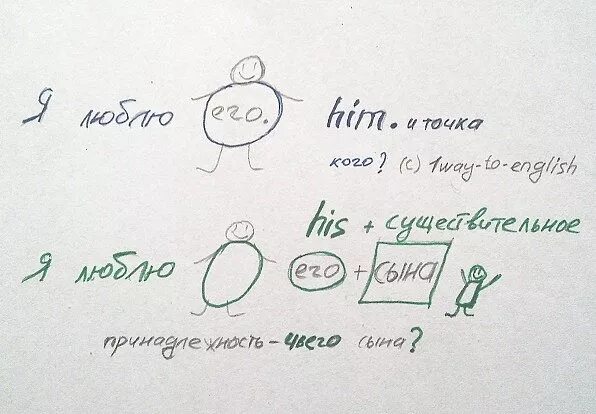 Я люблю его. him. и точка
кого? (c) 1way-to-english
his + существительное
Я люблю его + сына
принадлежность - чьего сына?